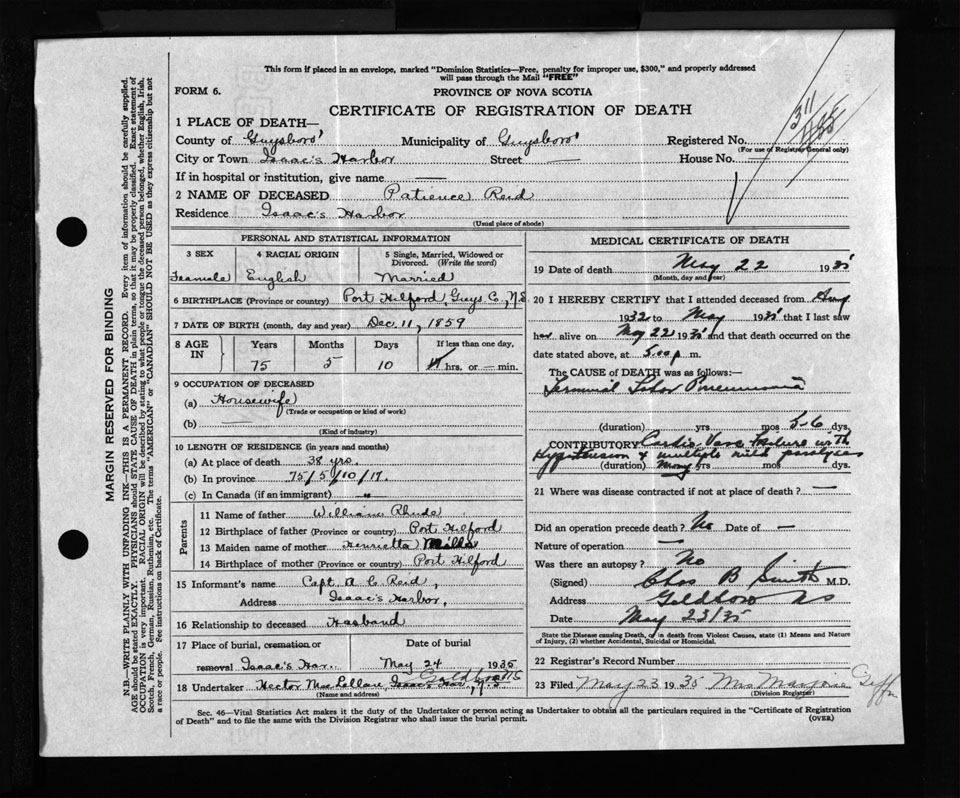 This form if placed in an envelope, marked "Dominion Statistics—Free, penalty for improper use, $300," and properly addressed
will pass through the Mail "FREE"
FORM 6.
PROVINCE OF NOVA SCOTIA
CERTIFICATE OF REGISTRATION OF DEATH
311
1 PLACE OF DEATH—
County of Guysboro' Municipality of Guysboro' Registered No.
(For use of Registrar General only)
City or Town Isaac's Harbor Street — House No. —
If in hospital or institution, give name —
2 NAME OF DECEASED Patience Reid
Residence Isaac's Harbor
(Usual place of abode)
PERSONAL AND STATISTICAL INFORMATION
3 SEX 4 RACIAL ORIGIN 5 Single, Married, Widowed or Divorced. (Write the word)
Feamale English Married
6 BIRTHPLACE (Province or country) Port Hilford, Guys Co, N.S
7 DATE OF BIRTH (month, day and year) Dec. 11, 1859
8 AGE IN Years Months Days If less than one day,
75 5 10 hrs. or — min.
9 OCCUPATION OF DECEASED
(a) Housewife
(Trade or occupation or kind of work)
(b) —
(Kind of industry)
10 LENGTH OF RESIDENCE (in years and months)
(a) At place of death 38 yrs.
(b) In province 75/5/10/17.
(c) In Canada (if an immigrant) —
Parents
11 Name of father William Rhude
12 Birthplace of father (Province or country) Port Hilford
13 Maiden name of mother Henrietta Mills
14 Birthplace of mother (Province or country) Port Hilford
15 Informant's name Capt. A C Reid,
Address Isaac's Harbor,
16 Relationship to deceased Husband
17 Place of burial, cremation or removal Isaac's Har. Date of burial May 24 1935
18 Undertaker Hector MacLellan, Isaac's Har, N.S Goldboro NS
(Name and address)
MEDICAL CERTIFICATE OF DEATH
19 Date of death May 22 1935
(Month, day and year)
20 I HEREBY CERTIFY that I attended deceased from Aug
1932 to May 1935 that I last saw
her alive on May 22 1935 and that death occurred on the
date stated above, at 5.00 p. m.
The CAUSE of DEATH was as follows:—
Terminal Lobar Pneumonia
(duration) yrs. mos. 5-6 dys.
CONTRIBUTORY Cardio Vasc failure with
Hypertension & multiple mild paralyses
(duration) Many yrs mos dys.
21 Where was disease contracted if not at place of death? —
Did an operation precede death? No Date of —
Nature of operation —
Was there an autopsy? No
(Signed) Chas B Smith M.D.
Address Goldboro NS
Date May 23/35
State the Disease causing Death, or in death from Violent Causes, state (1) Means and Nature
of Injury, (2) whether Accidental, Suicidal or Homicidal.
22 Registrar's Record Number
23 Filed May 23 1935 Mrs Marjorie Giffin
(Division Registrar)
Sec. 46—Vital Statistics Act makes it the duty of the Undertaker or person acting as Undertaker to obtain all the particulars required in the "Certificate of Registration
of Death" and to file the same with the Division Registrar who shall issue the burial permit.
(OVER)
MARGIN RESERVED FOR BINDING
N.B.—WRITE PLAINLY WITH UNFADING INK—THIS IS A PERMANENT RECORD. Every item of information should be carefully supplied.
AGE should be stated EXACTLY. PHYSICIANS should STATE CAUSE OF DEATH in plain terms, so that it may be properly classified. Exact statement of
OCCUPATION is very important. RACIAL ORIGIN will be described by stating to what people or tongue the deceased person belonged, whether English, Irish,
Scotch, French, German, Russian, Ruthenian, etc. The terms "AMERICAN" or "CANADIAN" SHOULD NOT BE USED as they express citizenship but not
a race or people. See instructions on back of Certificate.